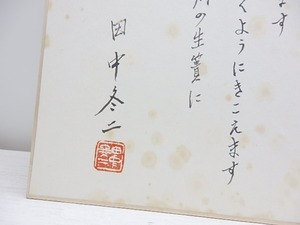 ます
くようにきこえます
の生簀に
田中冬二